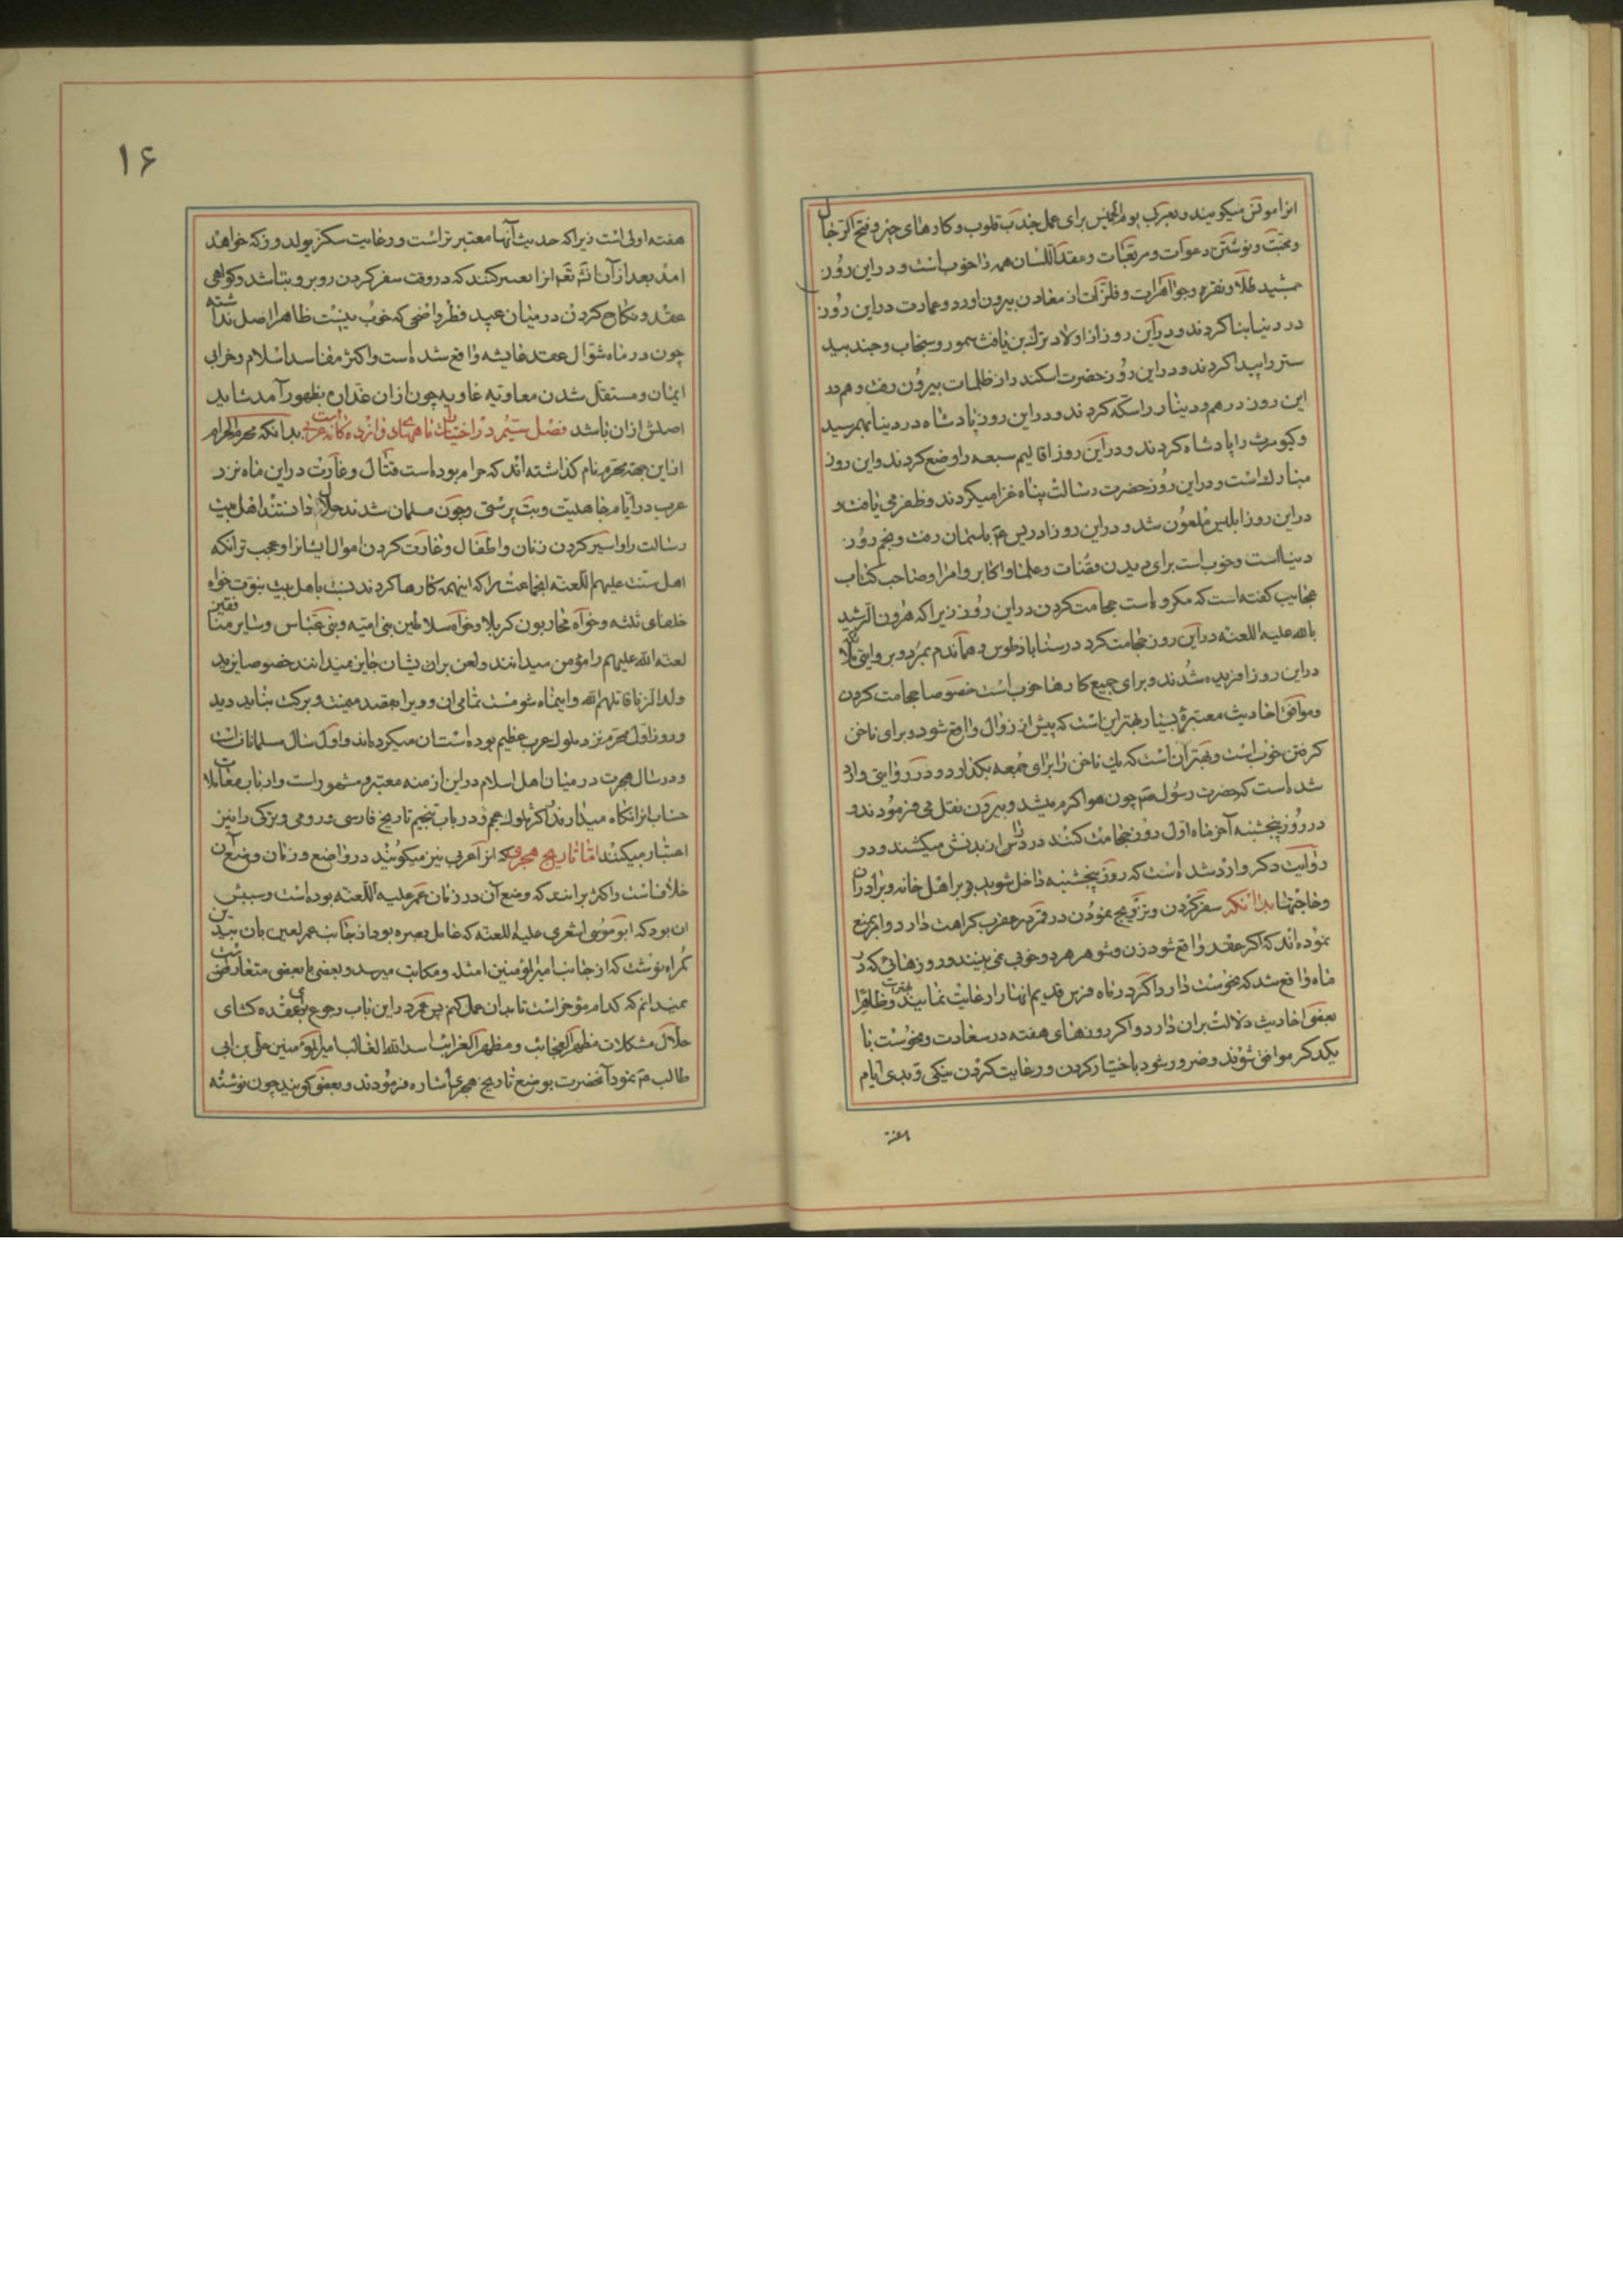 انرا مونس میکویند و بعربی یوم الخمیس برای عمل جذب قلوب و کارهای خیر و فتح اکثر خال
و محبت و نوشتن دعوات و مربعات و عقد اللسان همه را خوب است و در این روز
جمشید طلا و نقره و جواهرات و فلزات از معادن بیرون اورد و عمارت در این روز
در دنیا بنا کردند و در این روز از اولاد ترک بن یافث سمور و سنجاب و جند بید
ستر را پیدا کردند و در این روز حضرت اسکندر از ظلمات بیرون رفت و هم در
این روز درهم و دینار را سکه کردند و در این روز پادشاه در دنیا بهمرسید
و کیومرث را پادشاه کردند و در این روز اقالیم سبعه را وضع کردند و این روز
مبارک است و در این روز حضرت رسالت پناه غزا میکردند و ظفر می یافت و
در این روز ابلیس ملعون شد و در این روز ادریس ع باسمان رفت و پنجم روز
دنیا است و خوب است برای دیدن قضات و علما و اکابر و امرا و صاحب کتاب
عجایب کفته است که مکروه است حجامت کردن در این روز زیرا که هرون الرشید
بالله علیه اللعنه در این روز حجامت کرد در سناباد طوس و هماندم بمرد و بروایتی ملا
در این روز افریده شدند و برای جمیع کارها خوب است خصوصا حجامت کردن
و موافق احادیث معتبره بسیار بهتر این است که پیش از زوال واقع شود و برای ناخن
کرفتن خوب است و بهتر آن است که یک ناخن را برای جمعه بکذارد و در روایتی وارد
شده است که حضرت رسول ص چون هوا کرم میشد و بیرون نقل می فرمودند و
در روز پنجشنبه آخر ماه اول روز حجامت کنند درد را از بدنش میکشند و در
روایت دکر وارد شده است که روز پنجشنبه داخل شوید بر اهل خانه و برادران
و حاجتها بدانکه سفر کردن و تزویج نمودن در قمر در عقرب کراهت دارد و ابرمنع
نموده اند که اکر عقد واقع شود زن و شوهر هردو خوبی نمی بینند و روزهائی که در
ماه واقع شد که نحوست دارد و اکر در ماه فرس قدیم انها را رعایت نمایند بهتر است و ظاهرا
بعضی احادیث دلالت بران دارد و اکر روزهای هفته در سعادت و نحوست با
یکدکر موافق شوند و ضرور نبود باختیار کردن و رعایت کردن نیکی و بدی ایام
هفته
۱۶
هفته اولی است زیرا که حدیث آنها معتبر تر است و رعایت سکز یولدوز که خواهد
امد بعد از آن ان شه تعه انرا بعسر کنند که در وقت سفر کردن روبرو نباشد و کواهی
عقد و نکاح کردن در میان عید فطر و اضحی که خوب نیست ظاهرا اصل نداشته
چون در ماه شوال عقد عایشه واقع شده است و اکثر مفاسد اسلام و خرابی
ایمان و مستقل شدن معاویه غاویه چون ازان غداره بظهور آمد شاید
اصلش ازان باشد فصل سیم در اختیارات ماههای دوازده کانه عربی است بدانکه محرم الحرام
از این جهة محرم نام کذاشته اند که حرام بوده است قتال و غارت در این ماه نزد
عرب در ایام جاهلیت و بت پرستی و چون مسلمان شدند حلال دانستند اهل بیت
رسالت را و اسیر کردن زنان و اطفال و غارت کردن اموال ایشانرا و عجب تر آنکه
اهل سنت علیهم اللعنه انجماعت را که اینهمه کارها کردند نسبت باهل بیت نبوت خواه
خلفای ثلثه و خواه محاربون کربلا و خواه سلاطین بنی امیه و بنی عباس و سایر منافقین
لعنه الله علیهم را مؤمن میدانند و لعن بران یشان جایز نمیدانند خصوصا یزید
ولد الزنا قاتلهم الله و اینماه شوم است تمامی ان و ویرا بقصد میمنت و برکت نباید دید
و روز اول محرم نزد ملوک عرب عظیم بوده است ان میکرده اند و اول سال مسلمانان است
و در سال هجرت در میان اهل اسلام در این ازمنه معتبر و مشهور است و ارباب معاملات
حساب انرا نکاه میدارند اکثر ملوک عجم و در باب تنجیم تاریخ فارسی و رومی و ترکی را نیز
اعتبار میکنند اما تاریخ هجری که انرا عربی نیز میکویند در واضع و زمان وضع آن
خلافست و اکثر برانند که وضع آن در زمان عمر علیه اللعنه بوده است و سببش
ان بود که ابو موسی اشعری علیه اللعنه که عامل بصره بود از جانب عمر لعین بان بیدین
کمراه نوشت که از جانب امیر المومنین امثله و مکاتب میرسد و بعضی با بعضی متعارض است
نمیدانم که کدام مؤخر است تا بدان عمل کنم پس عمر در این باب رجوع بعقده کشای
حلال مشکلات مظهر العجائب و مظهر الغرایب اسد الله الغالب امیر المومنین علی بن ابی
طالب ع نمود آنحضرت بوضع تاریخ هجری اشاره فرمودند و بعضی کویند چون نوشته